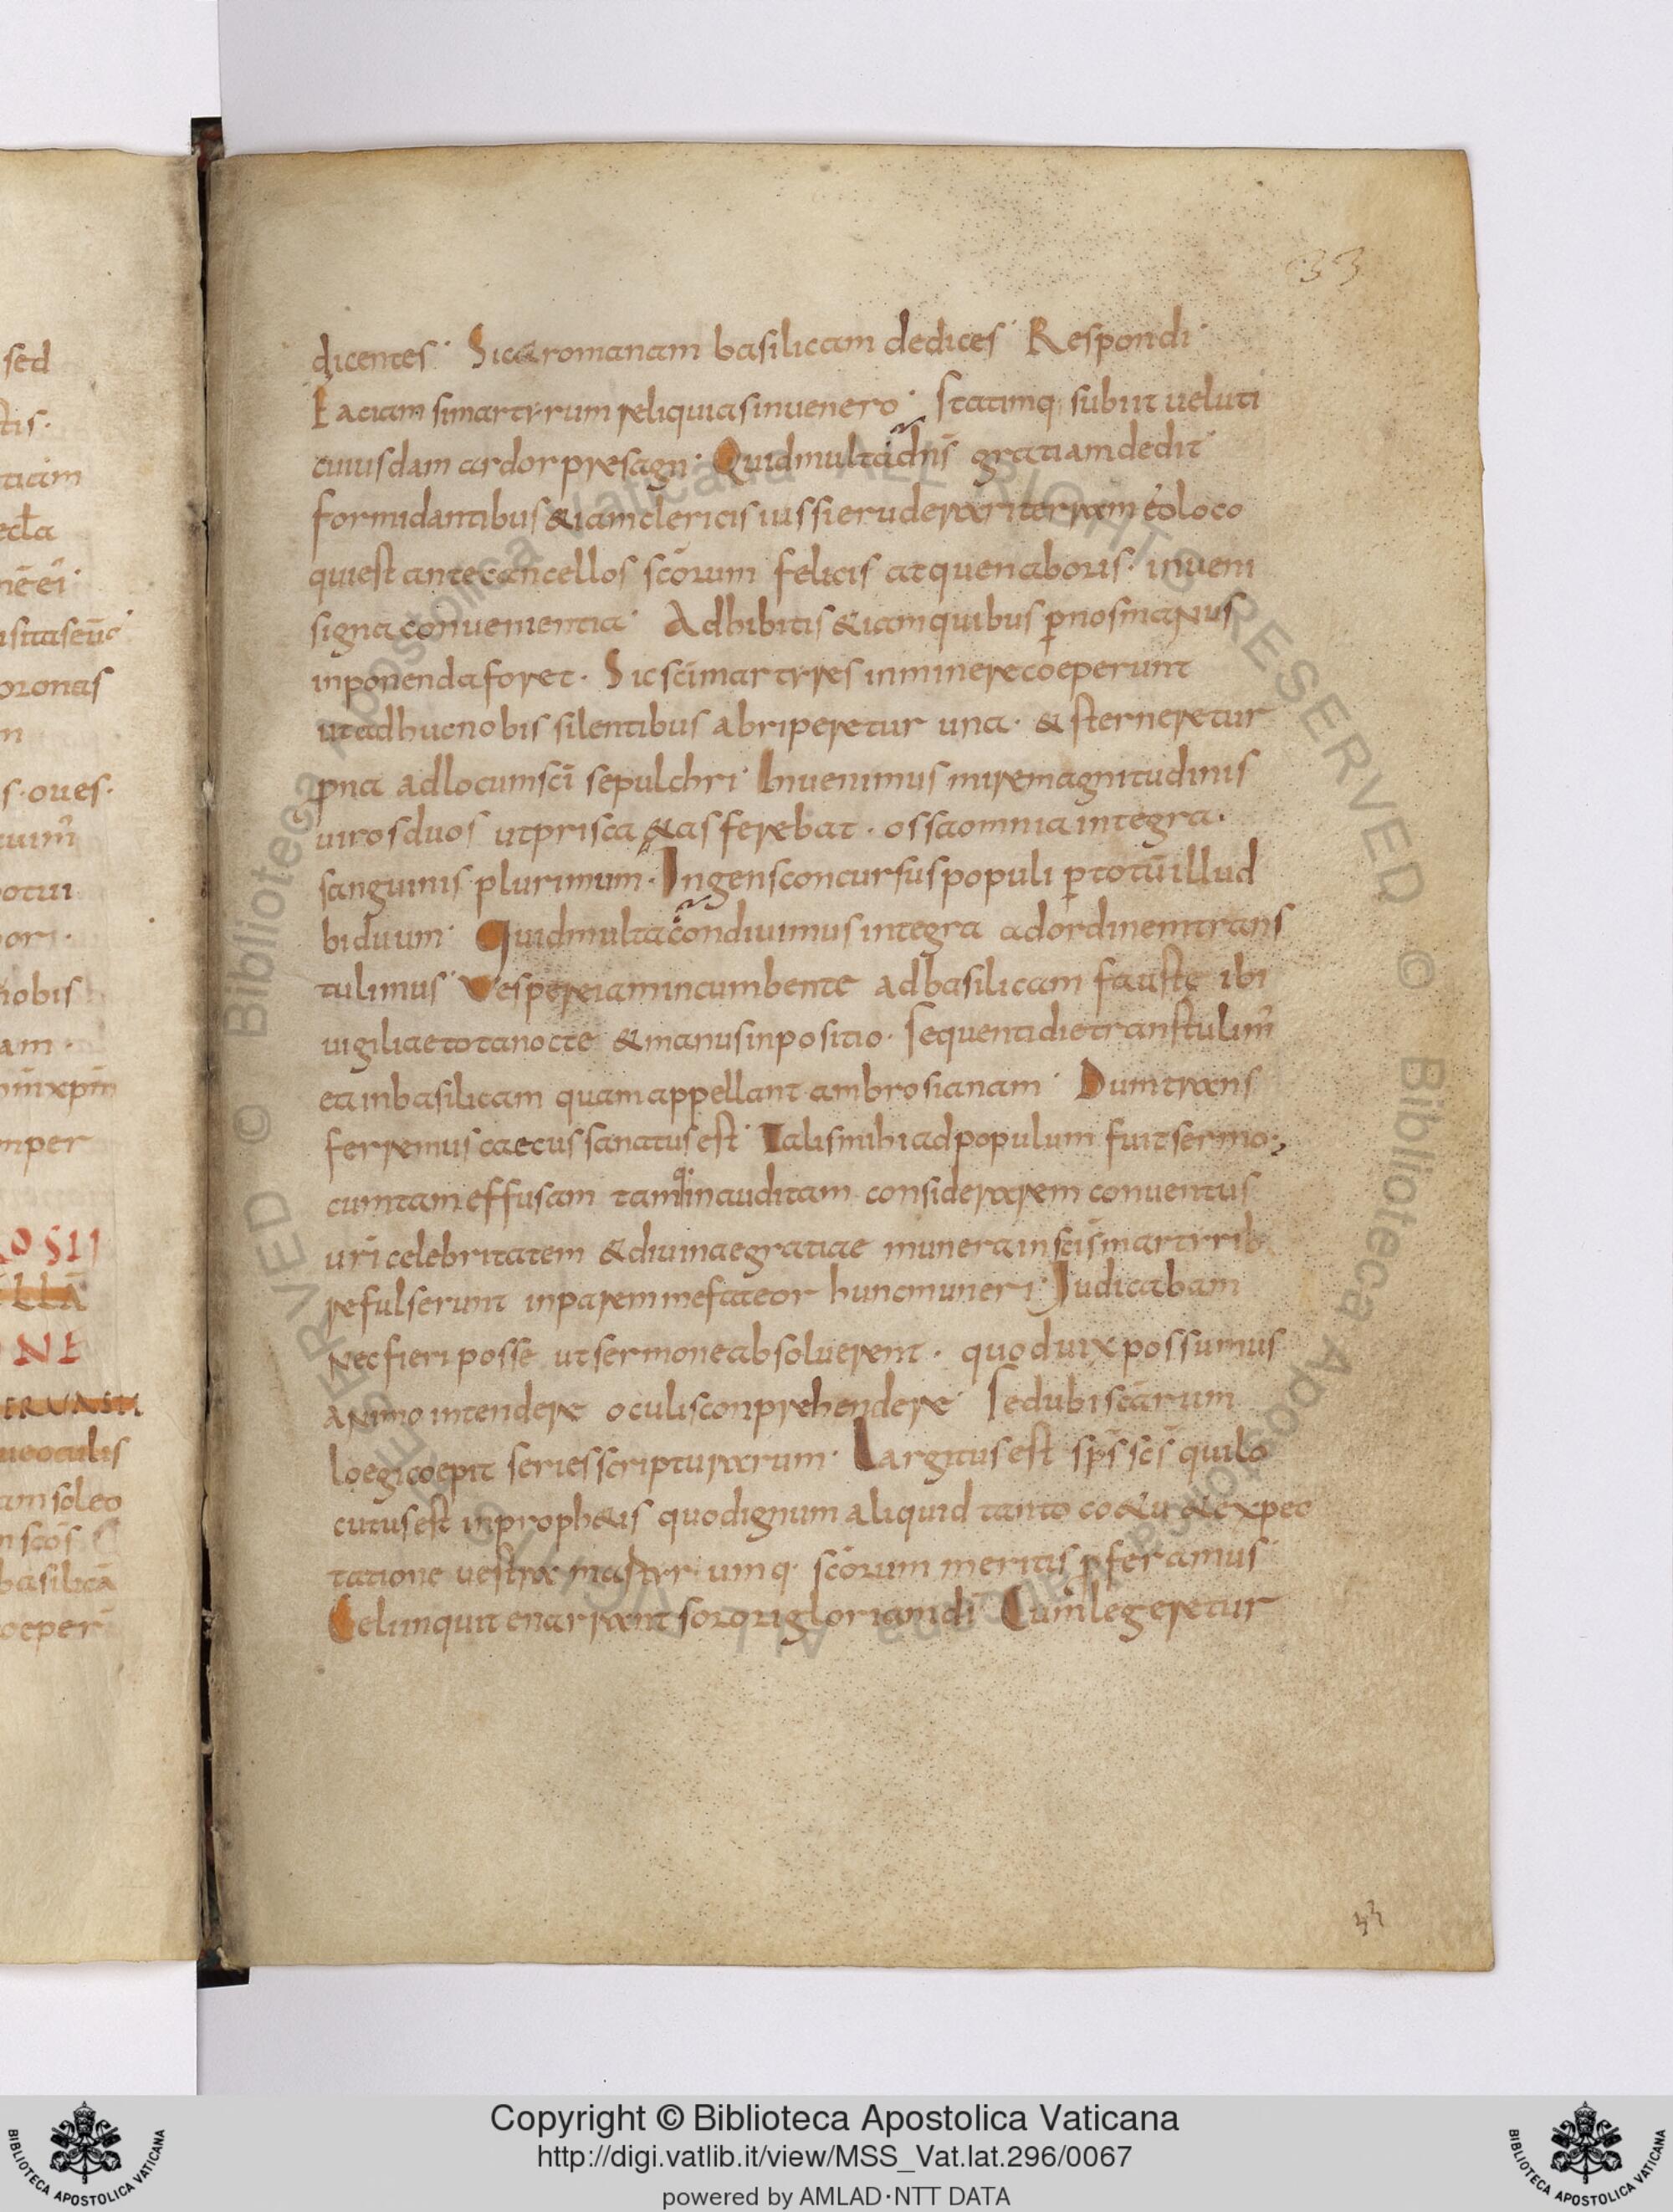 33
dicentes· Sicut romanam basilicam dedices· Respondi·
Faciam si martyrum reliquias inuenero· Statimq; subiit ueluti
cuiusdam ardor presagii· Quid multa dn̄s gratiam dedit
formidantibus &iam clericis iussi eruderari terram eo loco
qui est ante cancellos sc̄orum felicis atque naboris· inueni
signa conuenientia· Adhibitis &iam quibus ꝑ nos manus
inponenda foret· Sic sc̄i martyres inminere coeperunt
ut adhuc nobis silentibus abriperetur una· & sterneretur
ꝓna ad locum sc̄i sepulchri· Inuenimus mire magnitudinis
uiros duos ut prisca &as ferebat· ossa omnia integra·
sanguinis plurimum· Ingens concursus populi ꝑ totū illud
biduum· Quid multa condiuimus integra ad ordinem trans
tulimus· Vespere iam incumbente ad basilicam faustę ibi
uigiliae tota nocte &manus inpositio· Sequenti die transtulim̄
ea in basilicam quam appellant ambrosianam· Dum trans
ferremus caecus sanatus est· Talis mihi ad populum fuit sermo·,
cum tam effusam tamq; inauditam considerarem conuentus
ur̄i celebritatem &diuinae gratiae munera in sc̄is martyrib
refulserunt inparem me fateor hunc muneri· Iudicabam
Nec fieri posse ut sermone absoluerent· quod uix possumus
animo intendere oculis conprehendere· Sed ubi sc̄arum
loegi coepit series scripturarum· Largitus est sp̄s sc̄s qui lo
cutus est in proph&is quo dignum aliquid tanto co&u &expec
tatione uestra martyriumq· sc̄orum meritis ꝓferamus·
Celi inquit enarrant sorori gloriam dī Cum legeretur
33
sed
tis·
oronas
s·oues·
otui
nobis
am·
nper
ONE
ueoculis
am soleo
n sc̄os
basilicā
oeper
Copyright © Biblioteca Apostolica Vaticana
http://digi.vatlib.it/view/MSS_Vat.lat.296/0067
powered by AMLAD·NTT DATA
BIBLIOTECA APOSTOLICA VATICANA
BIBLIOTECA APOSTOLICA VATICANA